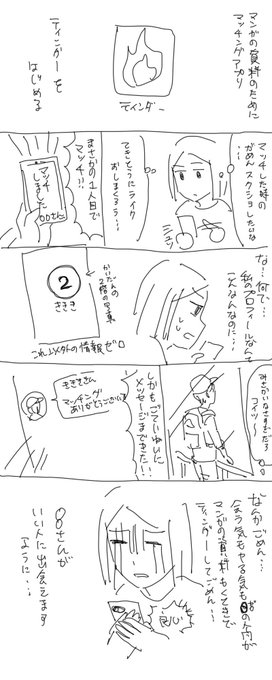 マンガの資料のために
マッチングアプリ
ティンダーを
はじめる
ティンダー
マッチした時の
がめんスクショしたいな
…
てきとうにライク
おしまくろう…
シュッ
まさかの1人目で
マッチ!!
マッチ
しました
〇〇さん
な…何で…
私のプロフィールなんて
こんなんなのに…
かいだんの
2階の写真
2
ききき
これ以外の情報ゼロ
コイツ
しかもごていねいに
メッセージまできた!!
きききさん
マッチング
ありがとうございます
なんかごめん…
会う気もやる気も0の奴が
マンガの資料もくてきで
ティンダーしてごめん…
良心
〇〇さんが
いい人に出会えます
ように…